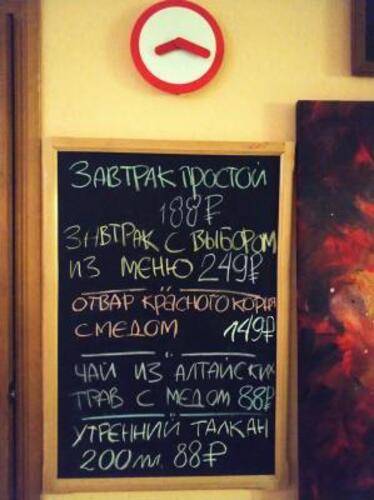 ЗАВТРАК ПРОСТОЙ
188₽
ЗАВТРАК С ВЫБОРОМ
ИЗ МЕНЮ 249₽
ОТВАР КРАСНОГО КОРНЯ
С МЕДОМ 149₽
ЧАЙ ИЗ АЛТАЙСКИХ
ТРАВ С МЕДОМ 88₽
УТРЕННИЙ ТАЛКАН
200мл 88₽